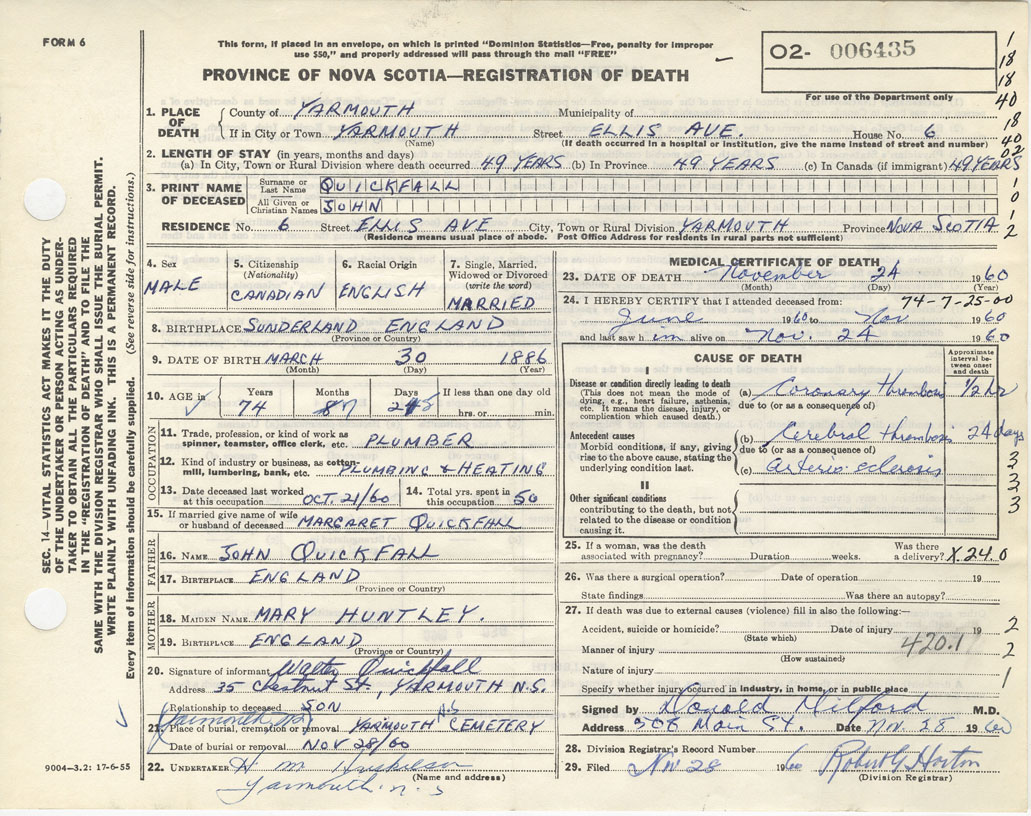 FORM 6
This form, if placed in an envelope, on which is printed "Dominion Statistics—Free, penalty for improper
use $50," and properly addressed will pass through the mail "FREE"
PROVINCE OF NOVA SCOTIA—REGISTRATION OF DEATH
O2- 006435
For use of the Department only
1
18
18
40
18
40
02
1
0
1
2
SEC. 14—VITAL STATISTICS ACT MAKES IT THE DUTY
OF THE UNDERTAKER OR PERSON ACTING AS UNDER-
TAKER TO OBTAIN ALL THE PARTICULARS REQUIRED
IN THE "REGISTRATION OF DEATH" AND TO FILE THE
SAME WITH THE DIVISION REGISTRAR WHO SHALL ISSUE THE BURIAL PERMIT.
WRITE PLAINLY WITH UNFADING INK. THIS IS A PERMANENT RECORD.
Every item of information should be carefully supplied. (See reverse side for instructions.)
1. PLACE OF DEATH
County of YARMOUTH Municipality of
If in City or Town YARMOUTH Street ELLIS AVE. House No. 6
(Name) (If death occurred in a hospital or institution, give the name instead of street and number)
2. LENGTH OF STAY (in years, months and days)
(a) In City, Town or Rural Division where death occurred 49 YEARS (b) In Province 49 YEARS (c) In Canada (if immigrant) 49 YEARS
3. PRINT NAME OF DECEASED
Surname or Last Name QUICKFALL
All Given or Christian Names JOHN
RESIDENCE No. 6 Street ELLIS AVE City, Town or Rural Division YARMOUTH Province NOVA SCOTIA
(Residence means usual place of abode. Post Office Address for residents in rural parts not sufficient)
4. Sex MALE
5. Citizenship (Nationality) CANADIAN
6. Racial Origin ENGLISH
7. Single, Married, Widowed or Divorced (write the word) MARRIED
8. BIRTHPLACE SUNDERLAND ENGLAND
(Province or Country)
9. DATE OF BIRTH MARCH 30 1886
(Month) (Day) (Year)
10. AGE in Years Months Days If less than one day
74 hrs. or min.
OCCUPATION
11. Trade, profession, or kind of work as
spinner, teamster, office clerk, etc. PLUMBER
12. Kind of industry or business, as cotton-
mill, lumbering, bank, etc. PLUMBING & HEATING
13. Date deceased last worked
at this occupation OCT 21/60
14. Total yrs. spent in
this occupation 50
15. If married give name of wife
or husband of deceased MARGARET QUICKFALL
FATHER
16. NAME JOHN QUICKFALL
17. BIRTHPLACE ENGLAND
(Province or Country)
MOTHER
18. MAIDEN NAME MARY HUNTLEY.
19. BIRTHPLACE ENGLAND
(Province or Country)
20. Signature of informant Walter Quickfall
Address 35 Chestnut St., YARMOUTH N.S.
Relationship to deceased SON
21. Place of burial, cremation or removal YARMOUTH N.S CEMETERY
Date of burial or removal NOV 28/60
22. UNDERTAKER H M
(Name and address)
Yarmouth, N. S
9004—3.2: 17-6-55
MEDICAL CERTIFICATE OF DEATH
23. DATE OF DEATH November 24 1960
(Month) (Day) (Year)
24. I HEREBY CERTIFY that I attended deceased from: 74-7-25-00
June 1960 to Nov 1960
and last saw h im alive on Nov. 24 1960
CAUSE OF DEATH
Approximate interval between onset and death
I
Disease or condition directly leading to death
(This does not mean the mode of
dying, e.g., heart failure, asthenia,
etc. It means the disease, injury, or
complication which caused death.)
(a) Coronary thrombosis 1/2 hr
due to (or as a consequence of)
Antecedent causes
Morbid conditions, if any, giving
rise to the above cause, stating the
underlying condition last.
(b) Cerebral thrombosis 24 days
due to (or as a consequence of)
(c) Arterio-sclerosis
II
Other significant conditions
contributing to the death, but not
related to the disease or condition
causing it.
3
3
3
3
25. If a woman, was the death
associated with pregnancy? Duration weeks. Was there
a delivery? X.24.0
26. Was there a surgical operation? Date of operation 19
State findings Was there an autopsy?
27. If death was due to external causes (violence) fill in also the following:—
Accident, suicide or homicide? Date of injury 19
(State which) 420.1
Manner of injury
(How sustained)
Nature of injury
2
2
1
Specify whether injury occurred in industry, in home, or in public place
Signed by Donald Milford M.D.
Address 508 Main St. Date Nov. 28 1960
28. Division Registrar's Record Number
29. Filed Nov 28 1960 Robert G Horton
(Division Registrar)